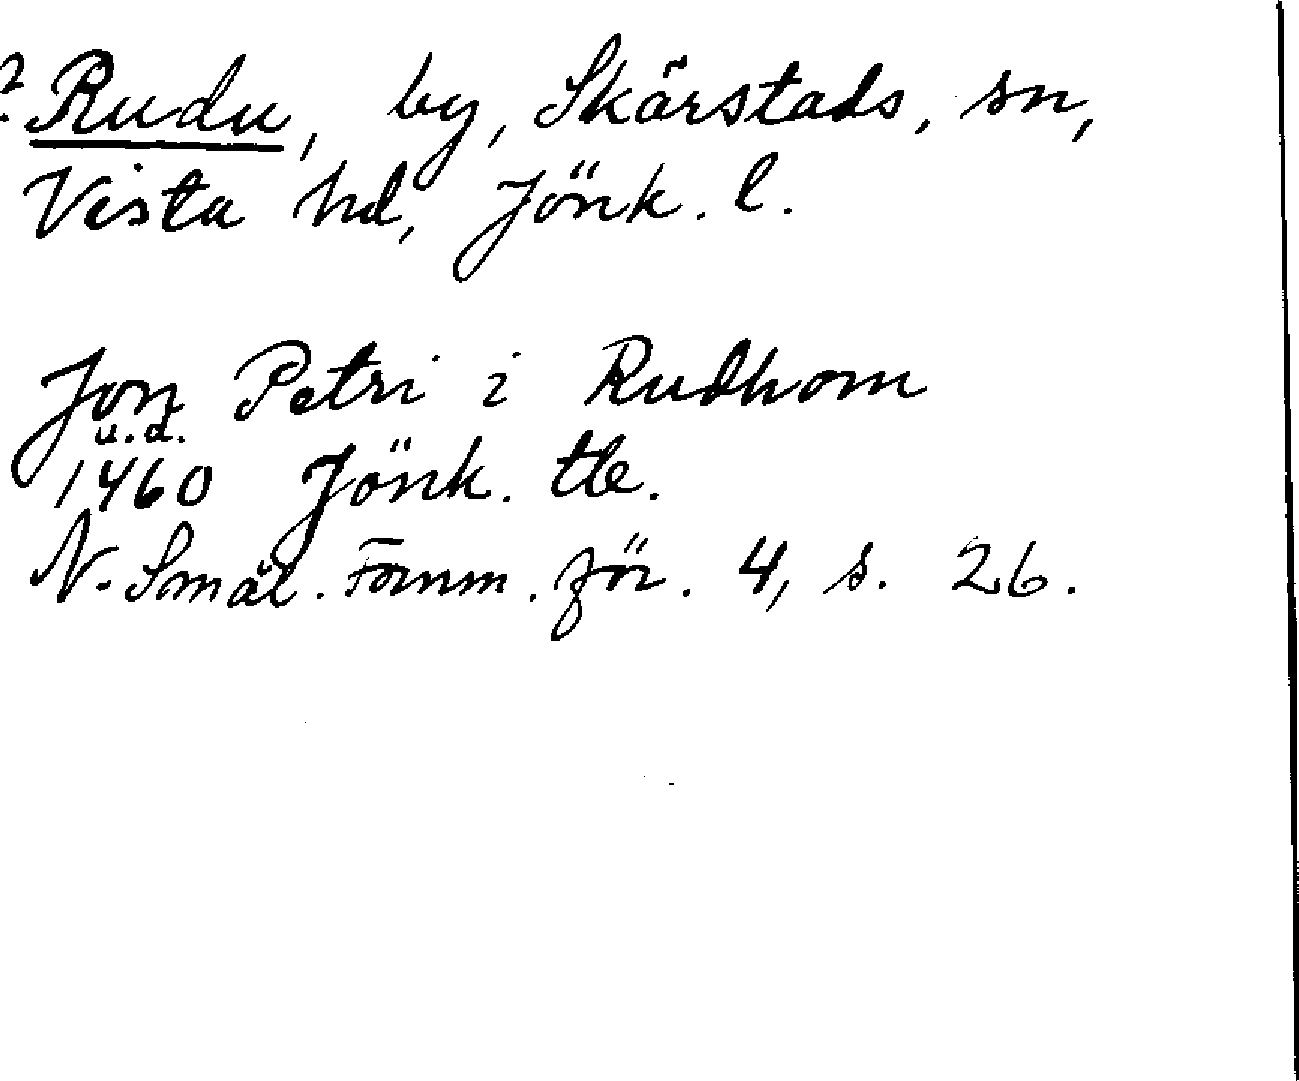 ? Rudu, by, Skärstads, sn,
Vista hd, Jönk. l.
Jon Petri i Rudhom
u.d.
1460 Jönk. tb.
N. Smål. Fornm. för. 4, s. 26.